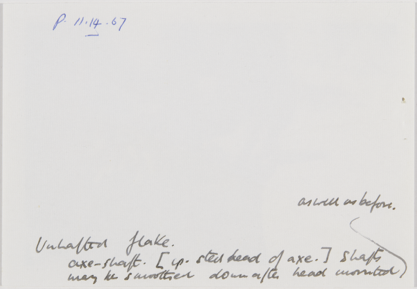 P. 11.14.67
as well as before.
Unhafted flake.
axe-shaft. [i.p. steel head of axe.] Shafts
may be smoothed down after head mounted)